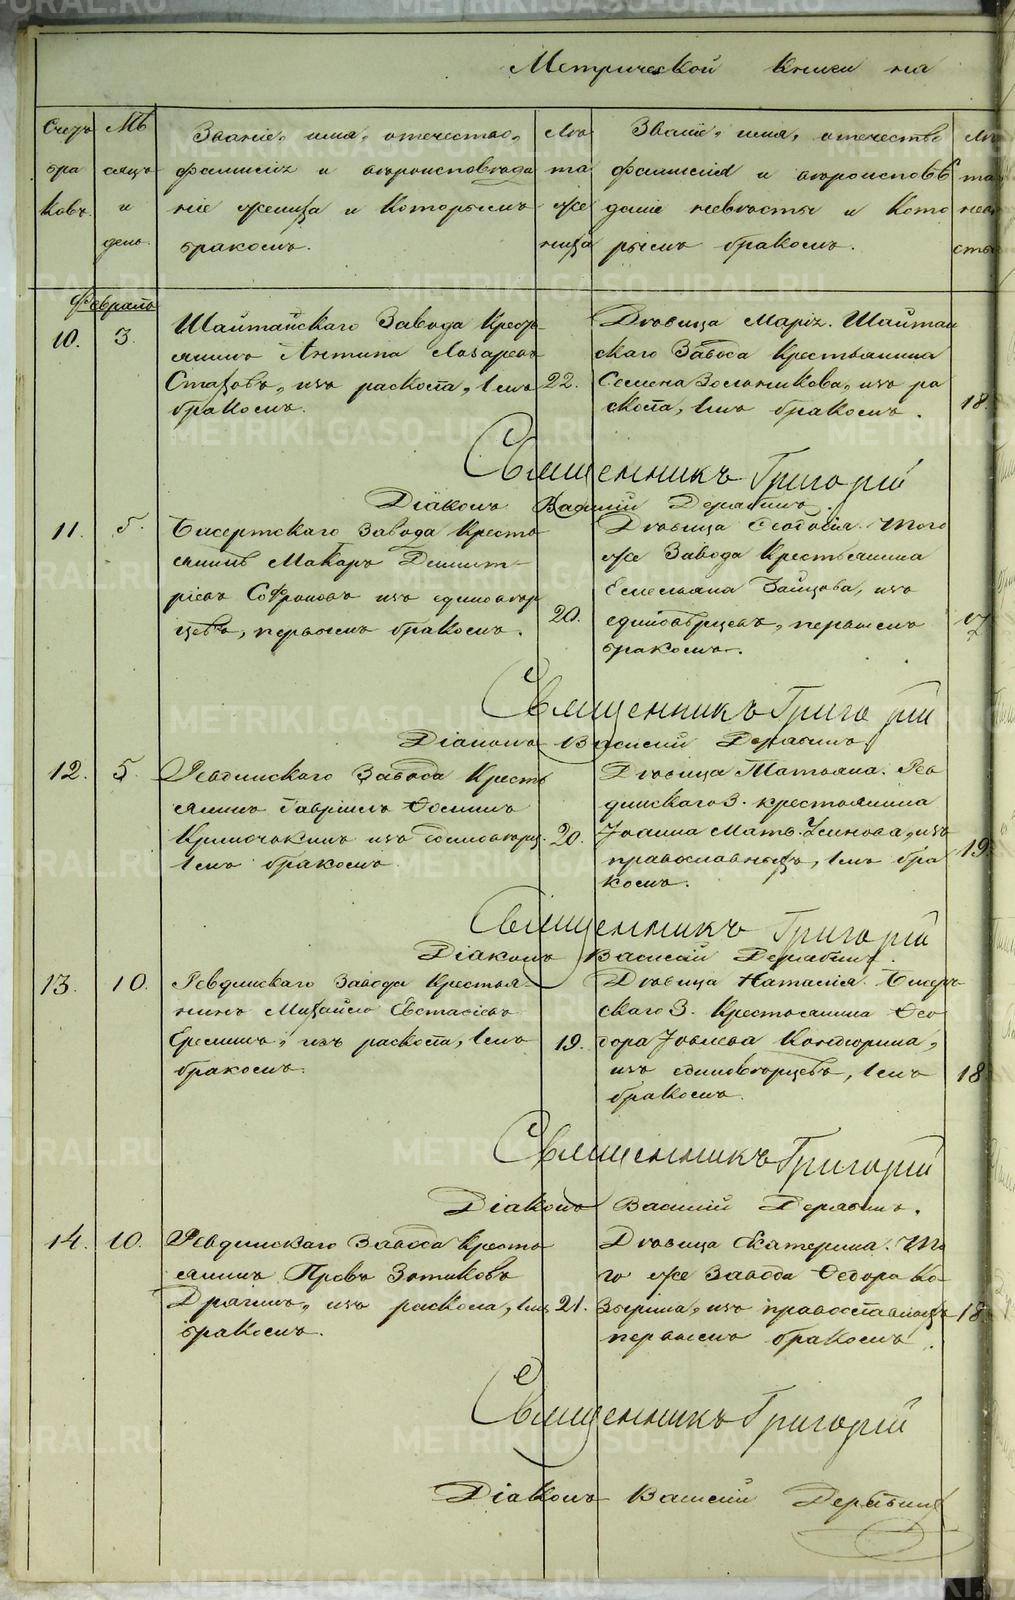 Метрической книги на
Счетъ
бра
ковъ.
Мѣ
сяцъ
и
день.
Званіе, имя, отечество,
фамилія и вѣроисповѣда
ніе жениха и которымъ
бракомъ.
Лѣ
та
же
ниха
Званіе, имя, отечество
фамилія и вѣроисповѣ
даніе невѣсты и кото
рымъ бракомъ.
Лѣ
та
невѣ
сты
Февраль
10.
3.
Шайтанскаго Завода Кресть
янинъ Антипа Лазаревъ
изъ раскола, 1мъ
бракомъ.
22.
Дѣвица Марія. Шайтан
скаго Завода Крестьянина
Семена Зольникова, изъ ра
скола, 1мъ бракомъ.
18.
Священникъ Григорій
Діаконъ Василій Дерябинъ.
11.
5.
Бисертскаго Завода Кресть
янинъ Макаръ Димит
ріевъ Софроновъ изъ единовѣр
цевъ, первымъ бракомъ.
20.
Дѣвица Ѳеодосія. Того
же Завода Крестьянина
Емельяна Зайцова, изъ
единовѣрцевъ, первымъ
бракомъ.
17
Священникъ Григорій
Діаконъ Василій Дерябинъ
12.
5.
Ревдинскаго Завода Кресть
янинъ Гавріилъ Ѳоминъ
изъ единовѣрц.
1мъ бракомъ.
20.
Дѣвица Татьяна. Рев
динскаго З. крестьянина
Іоанна Матв. Усинова, изъ
православныхъ, 1мъ бра
комъ.
19.
Священникъ Григорій
Діаконъ Василій Дерябинъ.
13.
10.
Ревдинскаго Завода Крестья
нинъ Михайло Евстаѳіевъ
Ереминъ, изъ раскола, 1мъ
бракомъ.
19.
Дѣвица Наталія. Бисерт
скаго З. Крестьянина Ѳео
дора Іовлева Кондюрина,
изъ единовѣрцевъ, 1мъ
бракомъ.
18
Священникъ Григорій
Діаконъ Василій Дерябинъ.
14.
10.
Ревдинскаго Завода Кресть
янинъ Провъ Зотиковъ
Дрягинъ, изъ раскола, 1мъ
бракомъ.
21.
Дѣвица Екатерина. То
го же Завода Ѳедора Ко
зырина, изъ православныхъ
первымъ бракомъ.
18.
Священникъ Григорій
Діаконъ Василій Дерябинъ
METRIKI.GASO-URAL.RU